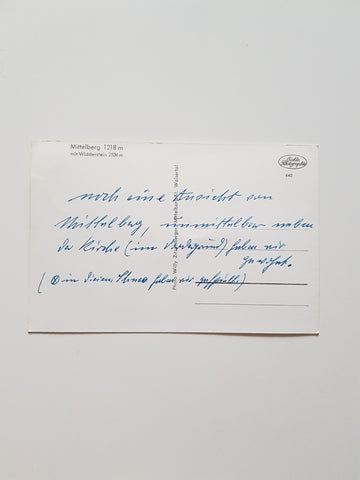 Mittelberg 1218 m
mit Widderstein 2536 m
Echte Photographie
640
noch eine Ansicht von
Mittelberg, unmittelbar neben
der Kirche (im Vordergrund) haben wir
gewohnt.
(⊗ in diesem Schnee haben wir gespielt.)
Photo Willy Mittelberg, kl. Walsertal